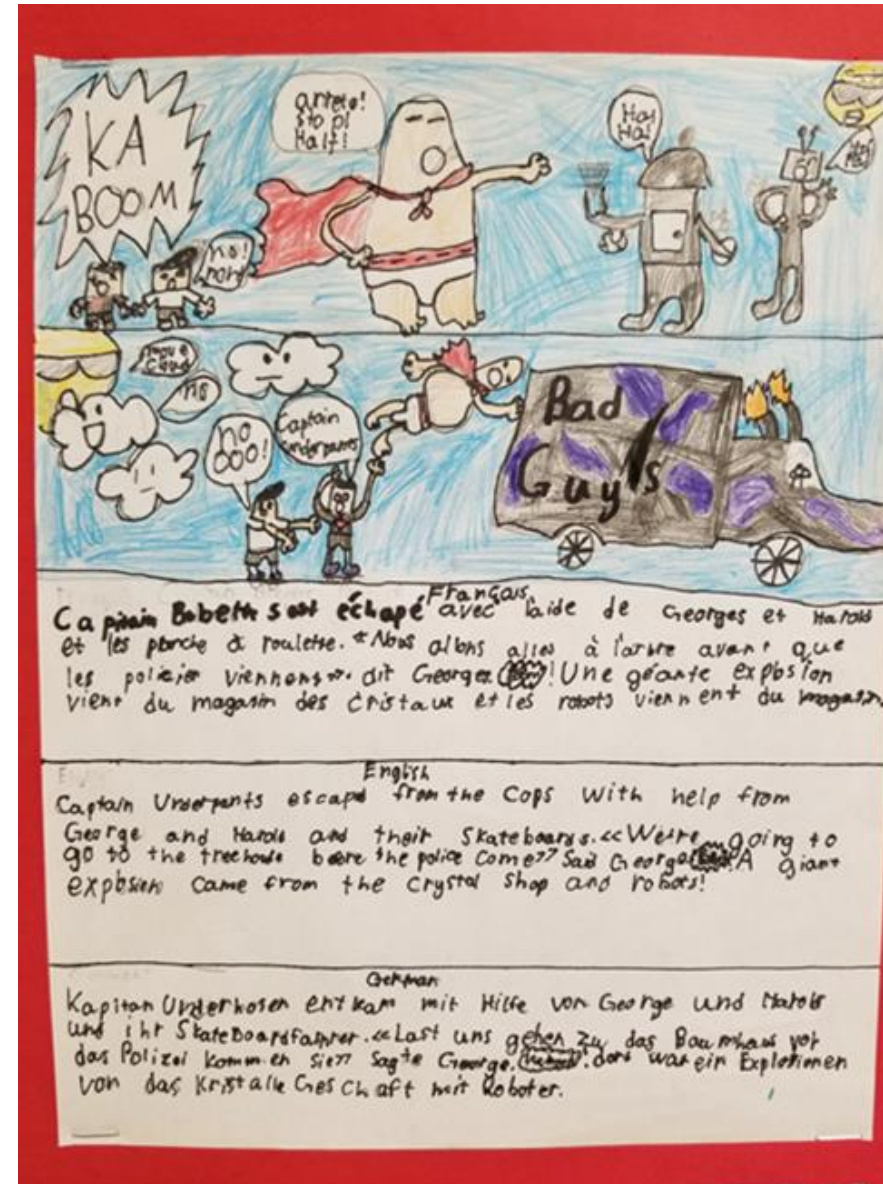 KA
BOOM
arrete!
stop!
Halt!
Ha!
Ha!
no!
no
no
ooo!
Captain
Underpants
Bad
Guy's
Français
Capitain Bobette s'est échapé avec l'aide de Georges et Harold
et les planche à roulette. «Nous allons alles à l'arbre avant que
les policier viennens». dit Georges ! Une géante explosion
vient du magasin des cristaux et les robots viennent du magasin
English
Captain Underpants escape from the Cops With help from
George and Harold and their Skateboards. «We're going to
go to the treehouse beore the police come» Said George A giant
explosion Came from the Crystal Shop and robots!
German
Kapitan Underhosen entkam mit Hilfe von George und Harold
und ihr SkateBoardfahrer. «Last uns gehen zu das Baumhaus vor
das Polizei kommen sie» sagte George. dort war ein Explotionen
von das Kristalle GesChaft mit Roboter.